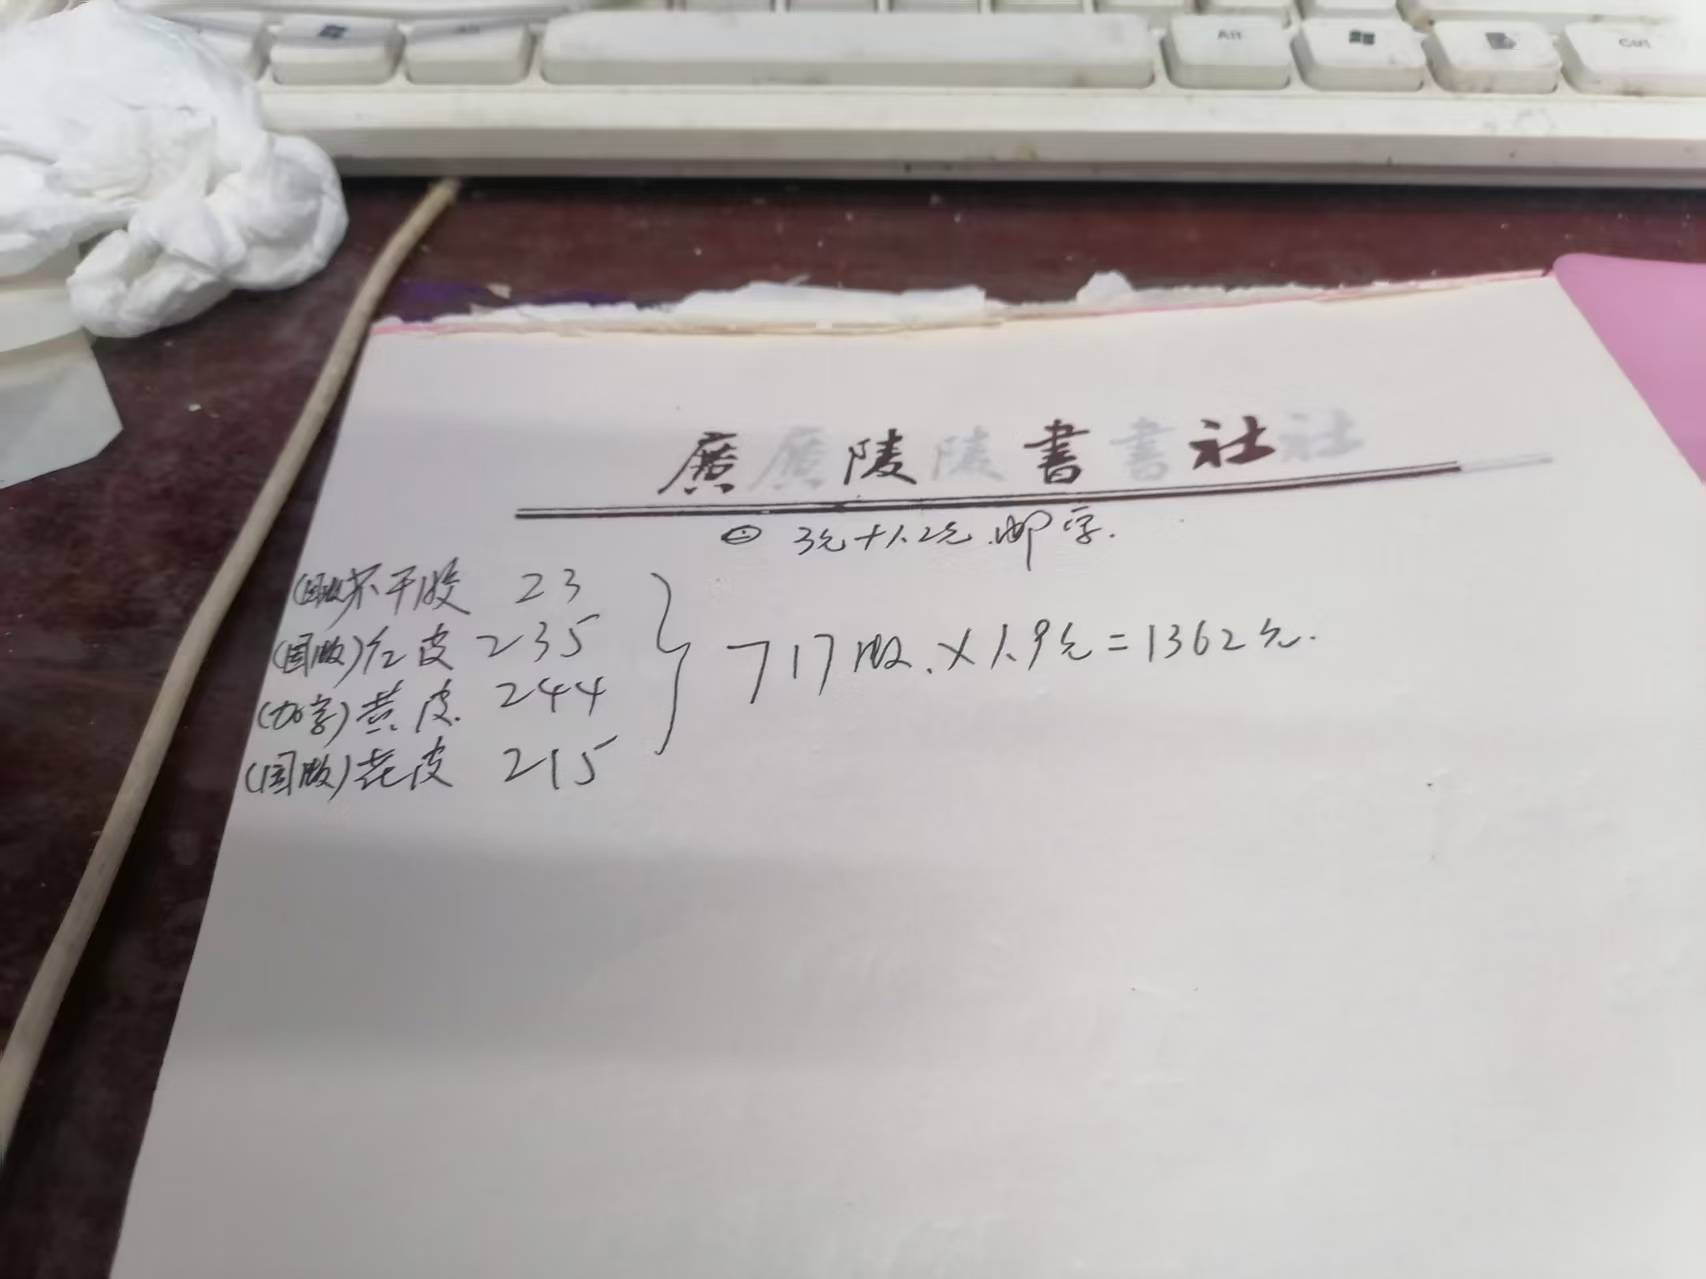 Alt
Alt
Ctrl
廣陵書社
㊁ 3元+1.2元.邮字.
(圆版)不干胶 23
(圆版)红皮 235
(加字)黄皮. 244
(圆版)花皮 215
717版.×1.9元=1362元.